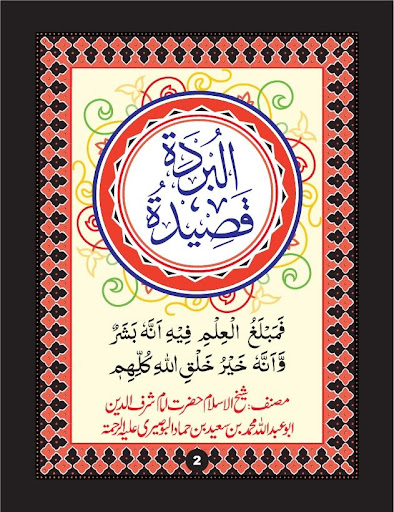 قَصِيدَةُ
الْبُرْدَة
فَمَبْلَغُ الْعِلْمِ فِيهِ اَنَّهٗ بَشَرٌ
وَّاَنَّهٗ خَيْرُ خَلْقِ اللهِ كُلِّهِمٖ
مصنف: شیخ الاسلام حضرت امام شرف الدین
ابو عبد اللہ محمد بن سعید بن حماد البوصیری علیہ الرحمۃ
2